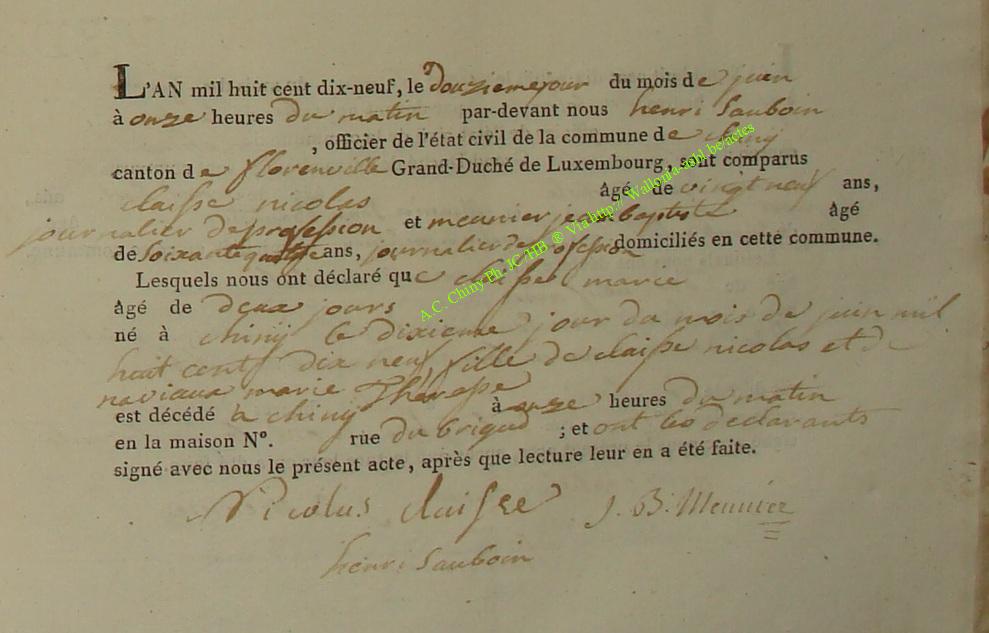 L'AN mil huit cent dix-neuf, le douzieme jour du mois de juin
à onze heures du matin par-devant nous henri Sauboin
, officier de l'état civil de la commune de chiny
canton de florenville Grand-Duché de Luxembourg, sont comparus
claisse nicolas âgé de vingt neuf ans,
journalier de profession et meunier jean baptiste âgé
de Soixante quatre ans, journalier de profession domiciliés en cette commune.
Lesquels nous ont déclaré que claisse marie
âgé de deux jours
né à chiny le dixieme jour du mois de juin mil
huit cent dix neuf, fille de claisse nicolas et de
naviaux marie Therese
est décédé à chiny à onze heures du matin
en la maison N°. rue du brigud ; et ont les declarants
signé avec nous le présent acte, après que lecture leur en a été faite.
Nicolas claisse J. B. Meunier
henri Sauboin
A.C. Chiny Ph. JC HB ® Via http:// Wallonia-asbl.be/actes